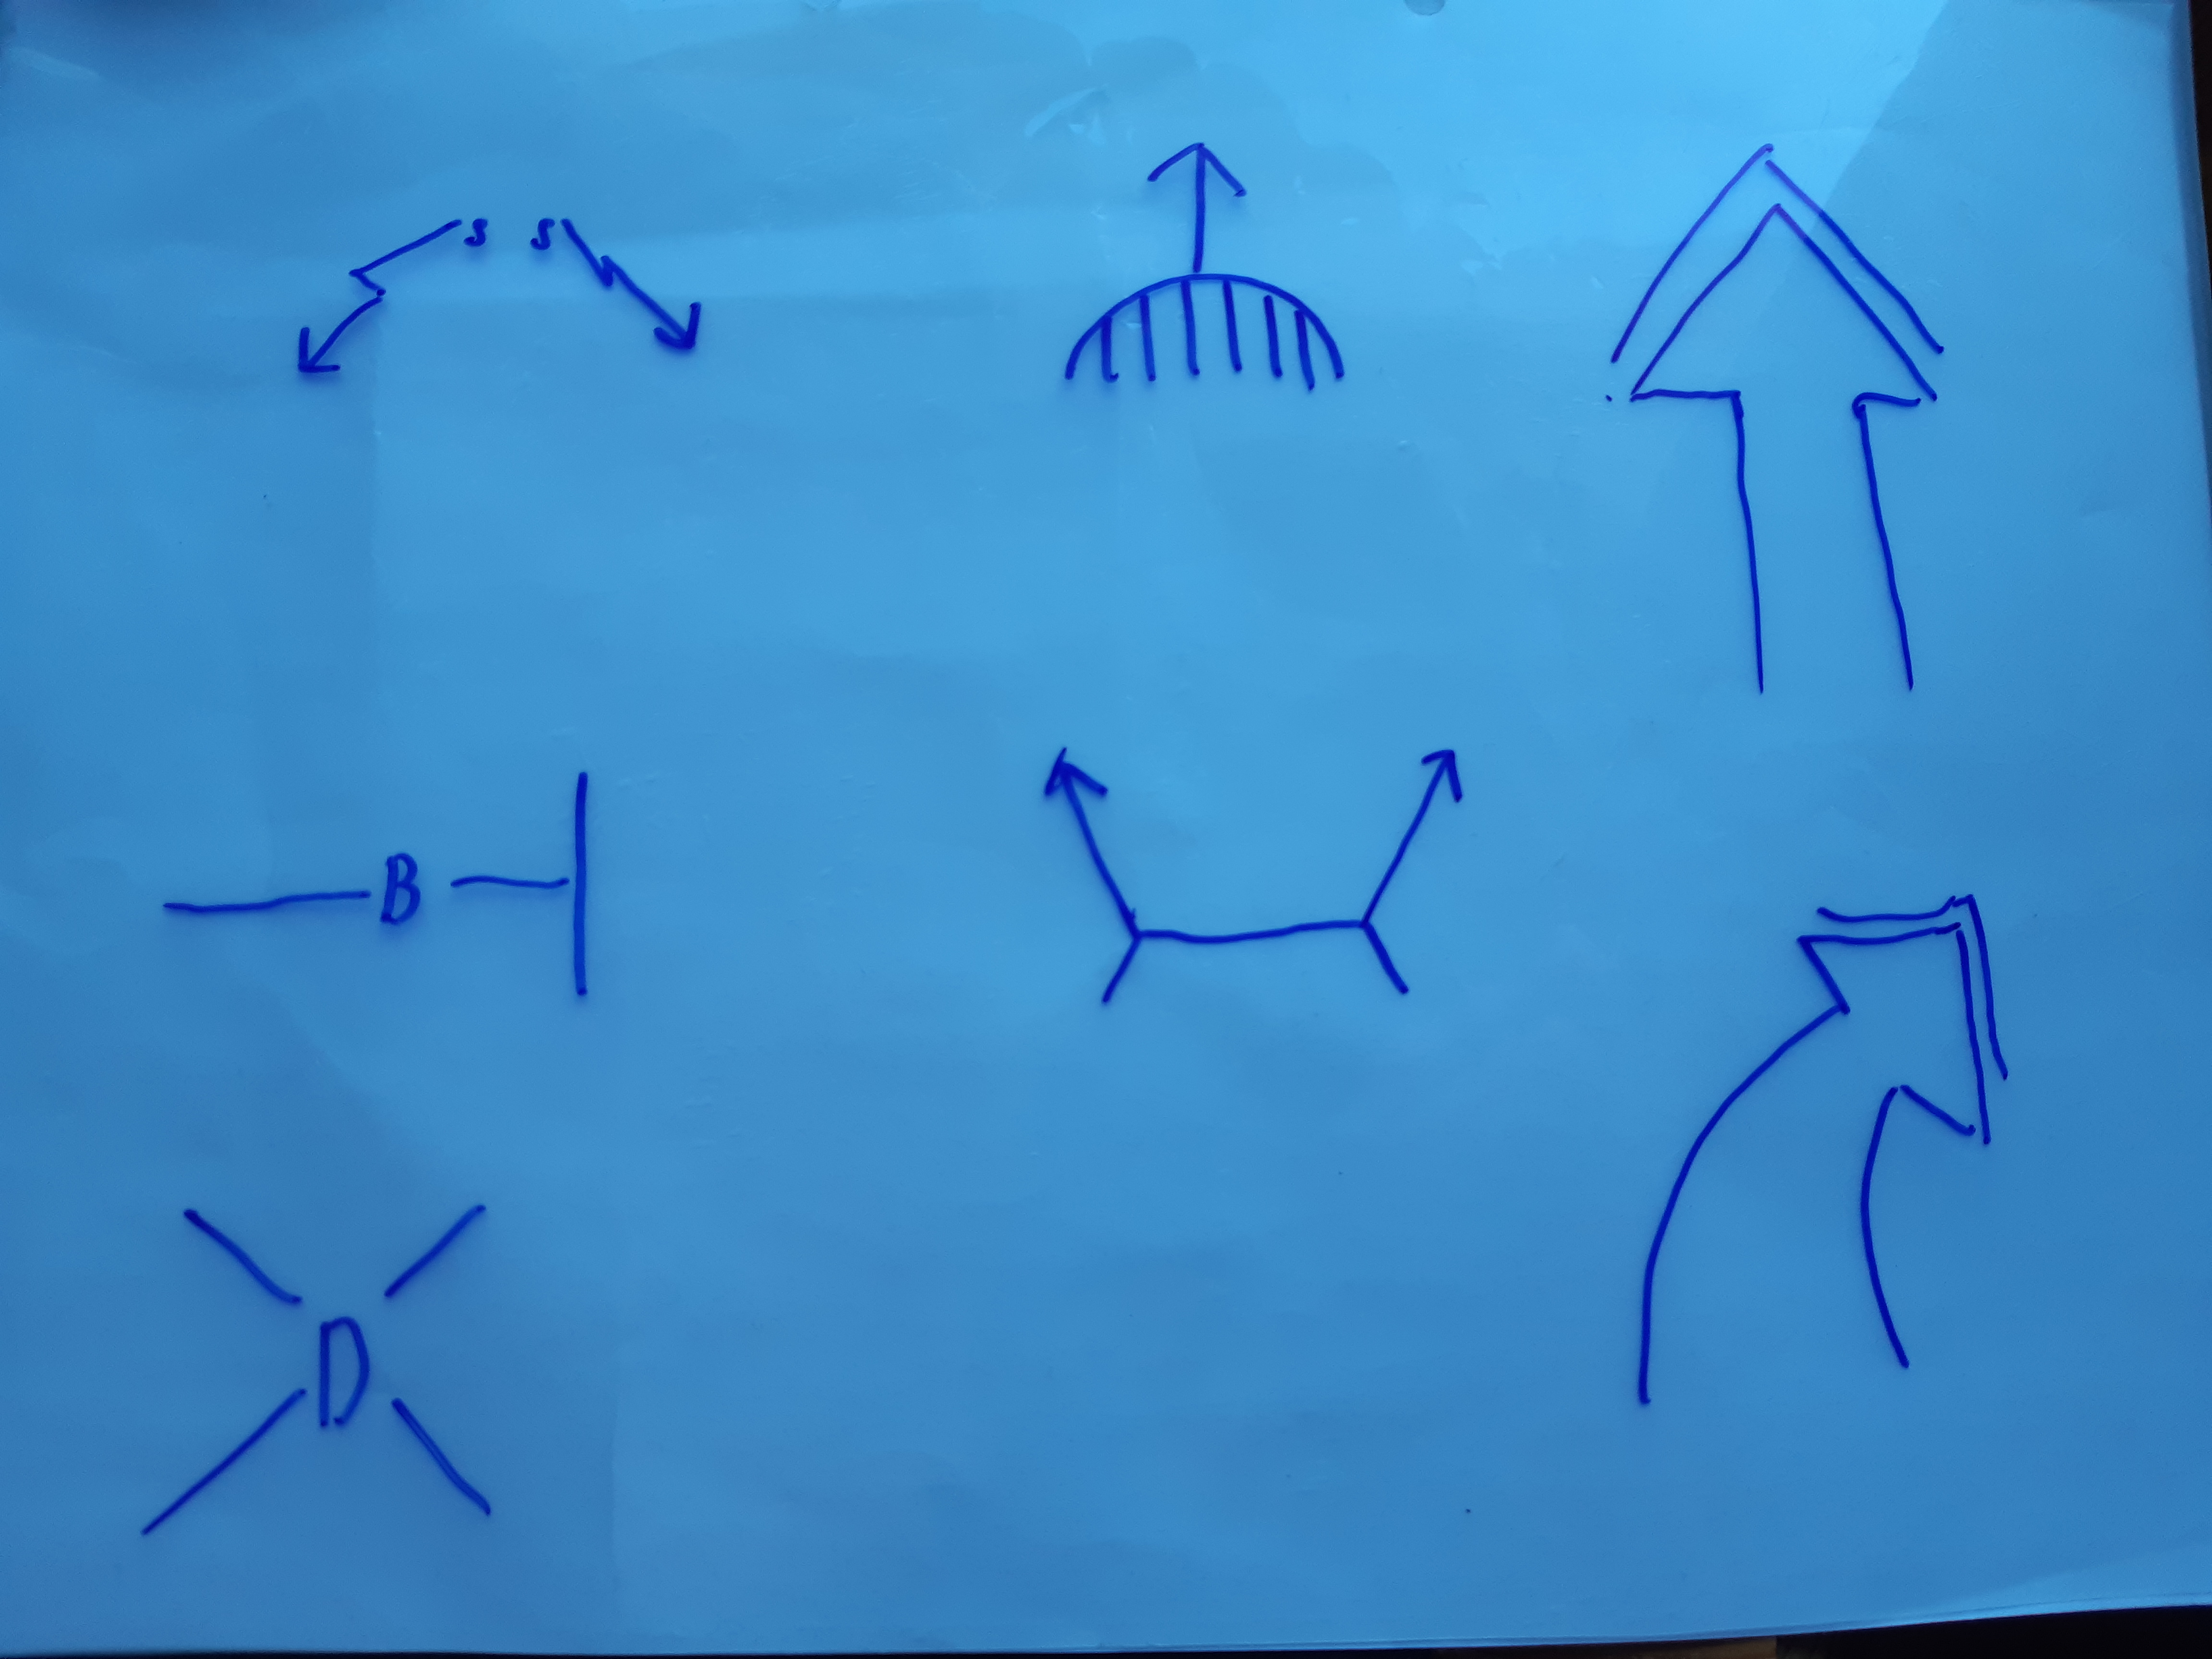 s s
B
D